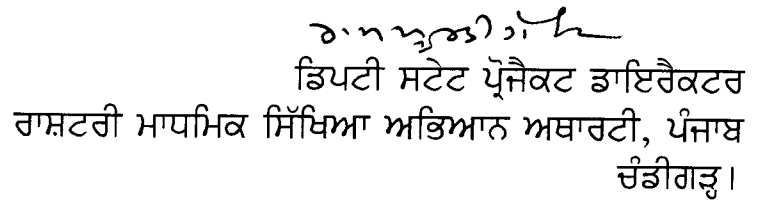 ਡਿਪਟੀ ਸਟੇਟ ਪ੍ਰੋਜੈਕਟ ਡਾਇਰੈਕਟਰ
ਰਾਸ਼ਟਰੀ ਮਾਧਮਿਕ ਸਿੱਖਿਆ ਅਭਿਆਨ ਅਥਾਰਟੀ, ਪੰਜਾਬ
ਚੰਡੀਗੜ੍ਹ।